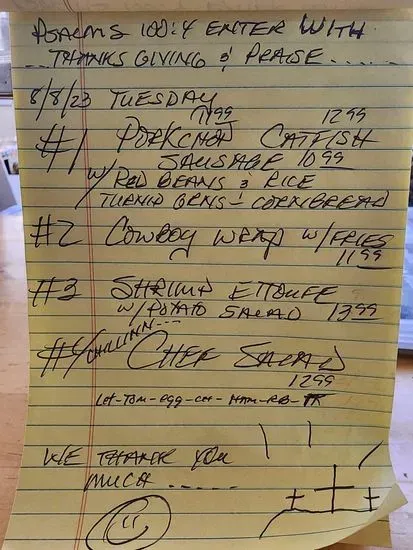 PSALMS 100:4 ENTER WITH
THANKS GIVING & PRAISE.....
8/8/23 TUESDAY
#1 PORKCHOP 11 99 CATFISH 12 99
SAUSAGE 10 99
W/ RED BEANS & RICE
TURNIP GRNS - CORNBREAD
#2 COWBOY WRAP W/ FRIES
11 99
#3 SHRIMP ETTOUFFE
W/ POTATO SALAD 13 99
#4 CHILLINN--- CHEF SALAD
12 99
LET-TOM-EGG-CH-HAM-RB-TK
WE THANK YOU
MUCH.....